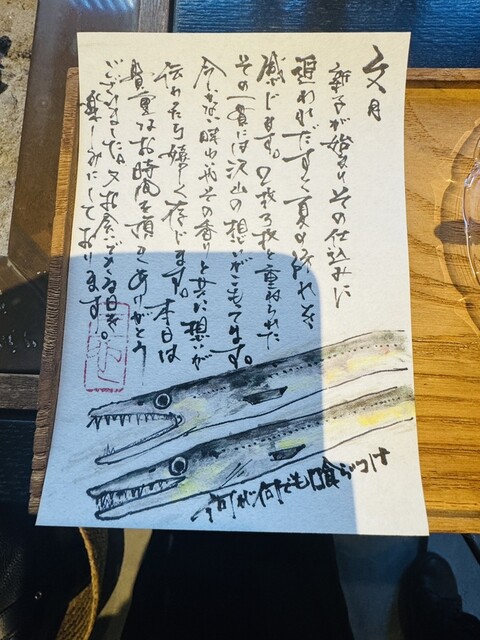 文月
新子が始まりその仕込みに
追われだすと夏の訪れを
感じます。2枚3枚と重ねられた
その一貫には沢山の想いがこもってます。
今しかない味わいその香りと共に想いが
伝わったら嬉しく存じます。本日は
貴重なお時間を頂きありがとう
ございました。又お会いできる日を
楽しみにしております
何が何でも喰らいつけ